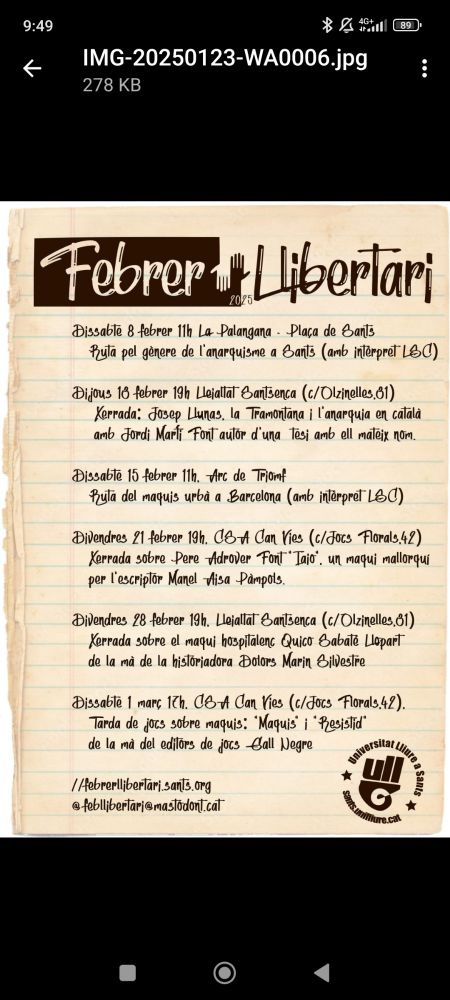 9:49
4G+
89
IMG-20250123-WA0006.jpg
278 KB
Febrer Llibertari
2025
Dissabte 8 febrer 11h La Palangana - Plaça de Sants
Ruta pel gènere de l'anarquisme a Sants (amb intèrpret LSC)
Dijous 13 febrer 19h Lleialtat Santsenca (c/Olzinelles,31)
Xerrada: Josep Llunas, la Tramontana i l'anarquia en català
amb Jordi Martí Font autor d'una tesi amb el mateix nom.
Dissabte 15 febrer 11h, Arc de Triomf
Ruta del maquis urbà a Barcelona (amb intèrpret LSC)
Divendres 21 febrer 19h, CSA Can Vies (c/Jocs Florals,42)
Xerrada sobre Pere Adrover Font "Iaio", un maqui mallorquí
per l'escriptor Manel Aisa Pàmpols.
Divendres 28 febrer 19h, Lleialtat Santsenca (c/Olzinelles,31)
Xerrada sobre el maqui hospitalenc Quico Sabaté Llopart
de la mà de la historiadora Dolors Marin Silvestre
Dissabte 1 març 17h, CSA Can Vies (c/Jocs Florals,42),
Tarda de jocs sobre maquis: "Maquis" i "Resistid"
de la mà del editors de jocs Gall Negre
//febrerllibertari.sants.org
@febllibertari@mastodont.cat
Universitat Lliure a Sants
ull
sants.unilliure.cat